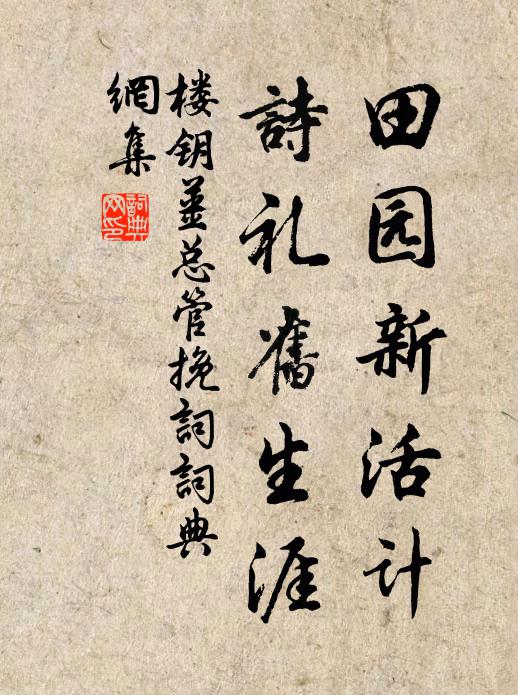 田园新活计
詩礼舊生涯
楼钥姜总管挽詞詞典
網集
詞典
网印